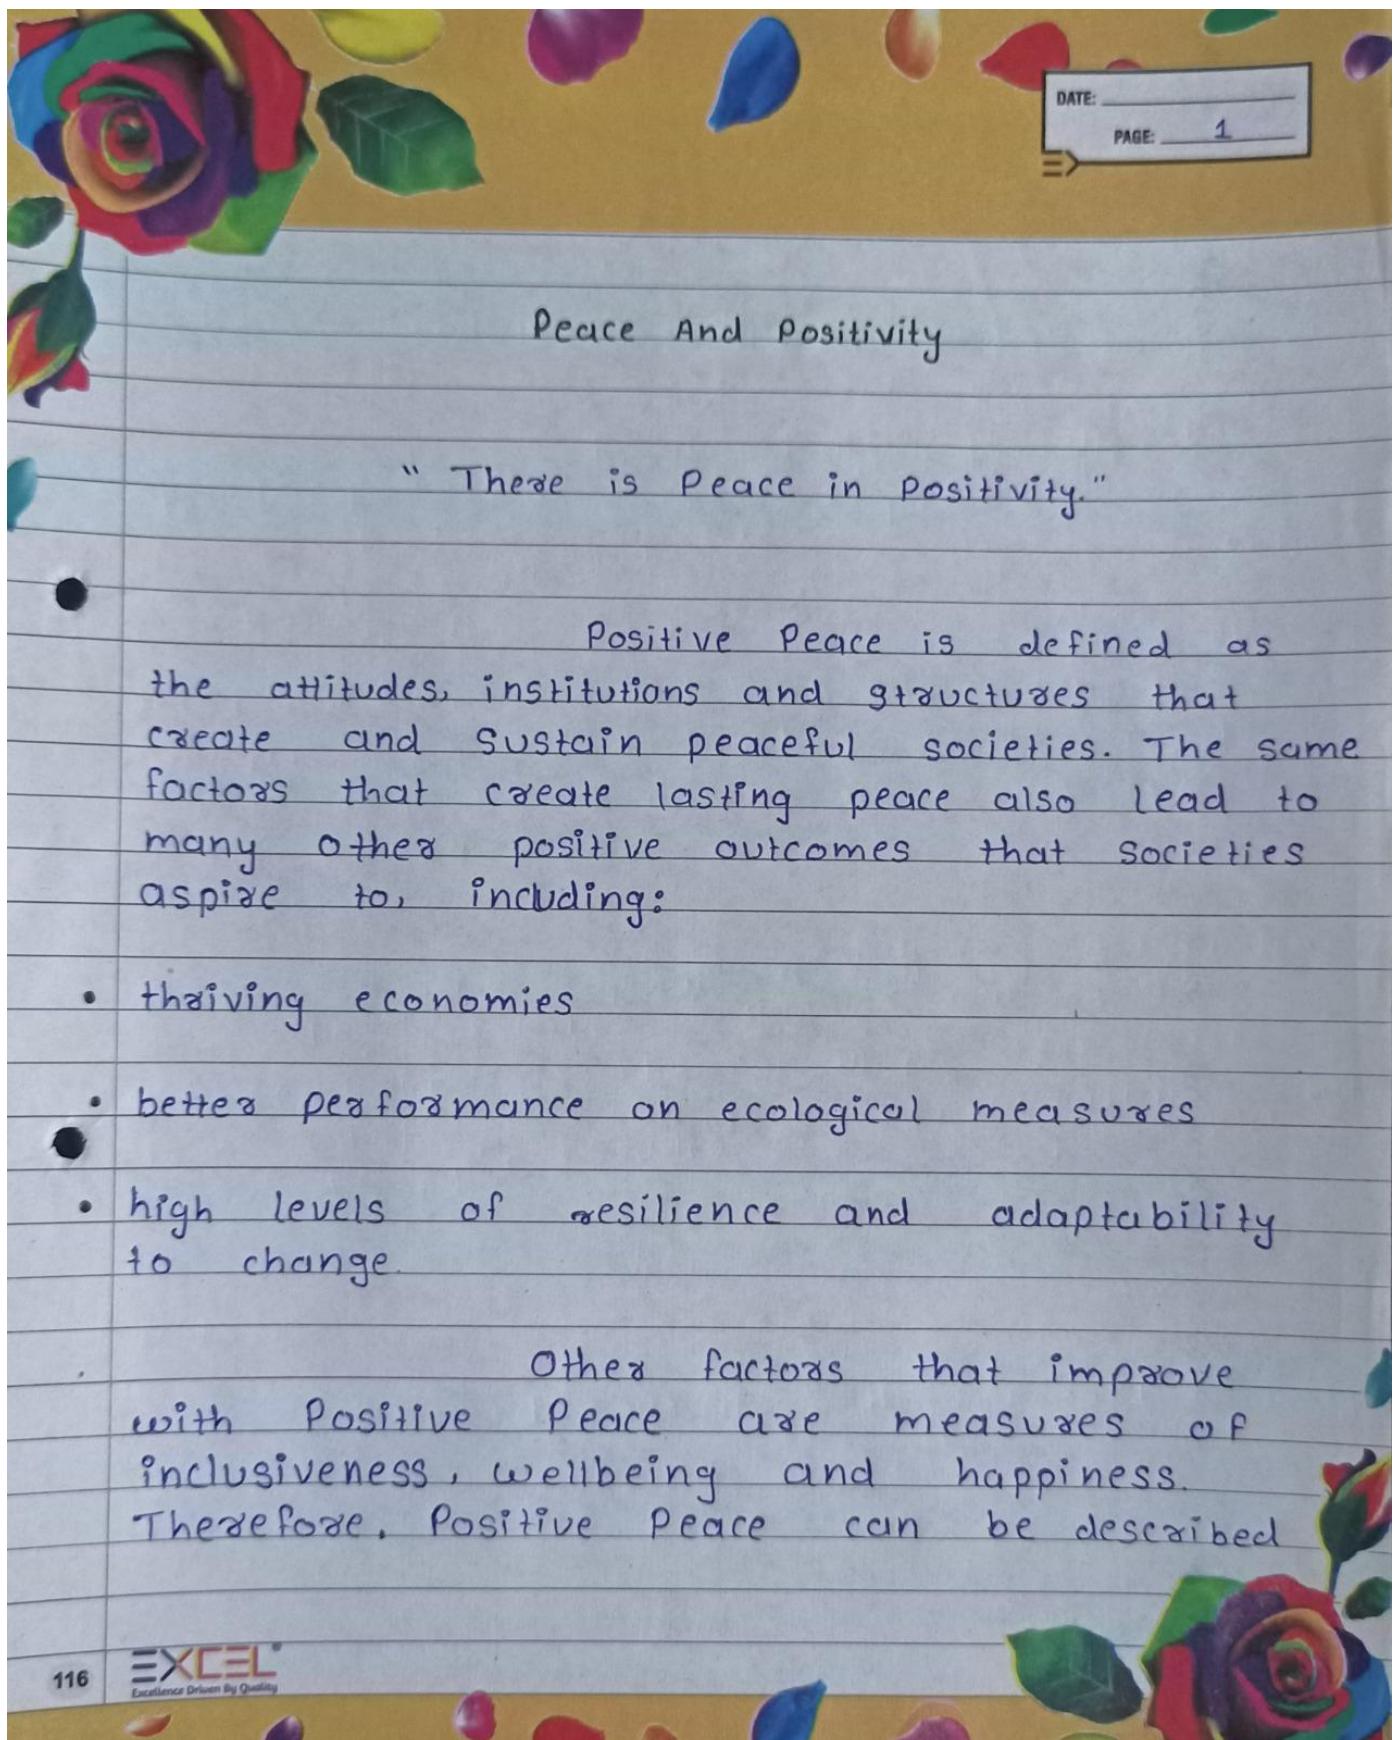 DATE:
PAGE: 1
Peace And Positivity
" There is Peace in Positivity."
Positive Peace is defined as
the attitudes, institutions and structures that
create and sustain peaceful societies. The same
factors that create lasting peace also lead to
many other positive outcomes that societies
aspire to, including:
• thriving economies
• better performance on ecological measures
• high levels of resilience and adaptability
to change.
Other factors that improve
with Positive Peace are measures of
inclusiveness, wellbeing and happiness.
Therefore, Positive Peace can be described
116
EXCEL
Excellence Driven By Quality